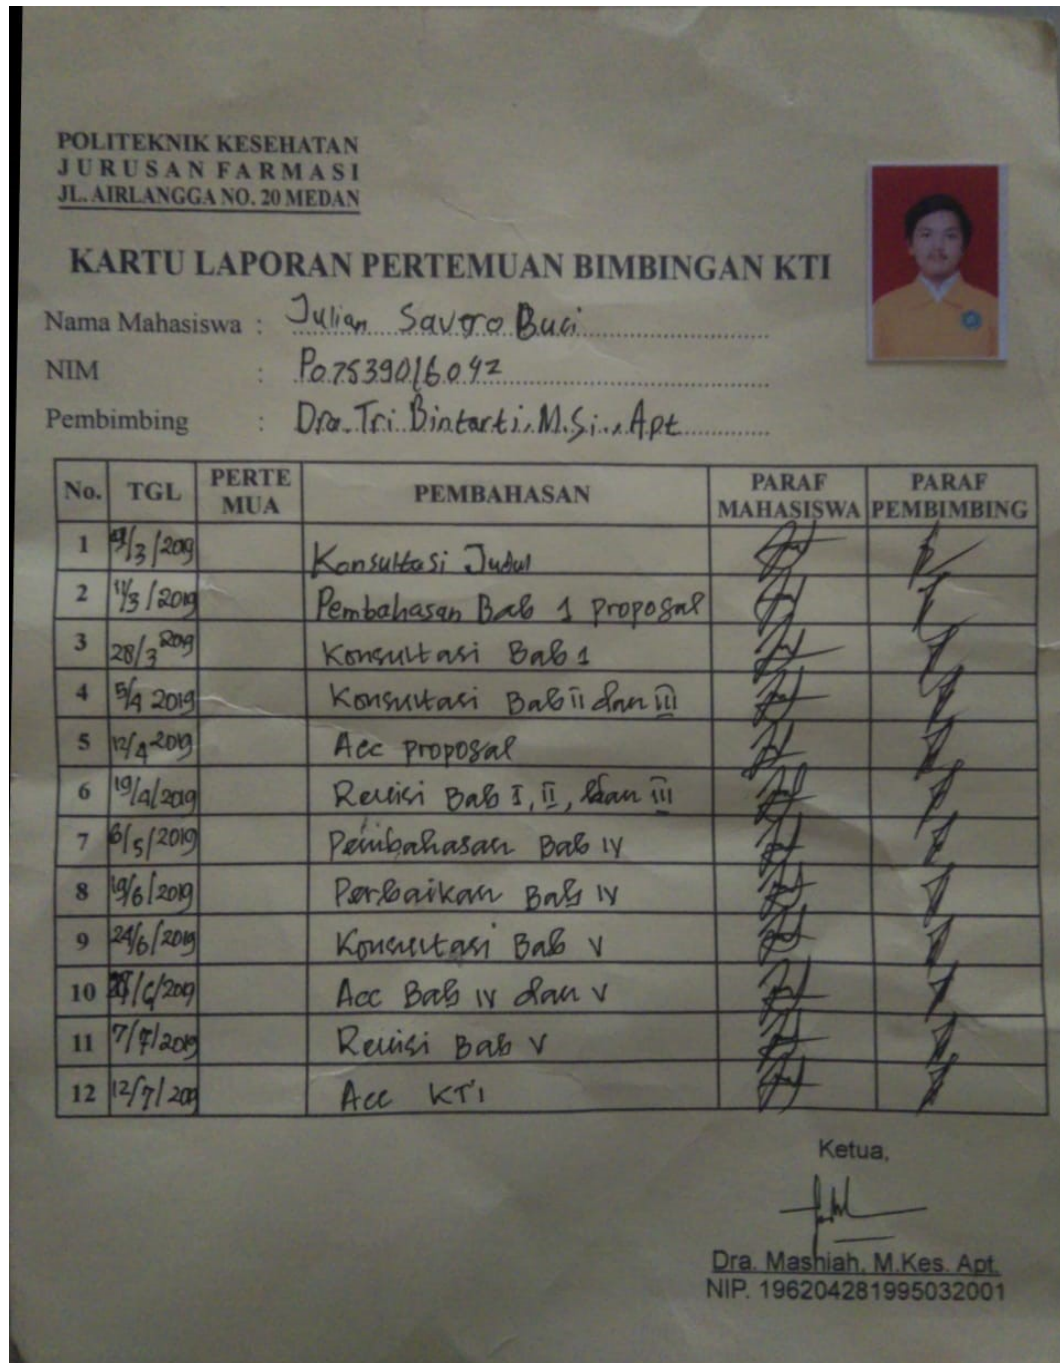 POLITEKNIK KESEHATAN
JURUSAN FARMASI
JL. AIRLANGGA NO. 20 MEDAN
KARTU LAPORAN PERTEMUAN BIMBINGAN KTI
Nama Mahasiswa : Julian Savero
NIM : P07539016042
Pembimbing : Dra. Tri Bintarti, M.Si., Apt
No. TGL PERTE MUA PEMBAHASAN PARAF MAHASISWA PARAF PEMBIMBING
1 /3/2019 Konsultasi Judul
2 11/3/2019 Pembahasan Bab 1 proposal
3 28/3 2019 Konsultasi Bab 1
4 5/4 2019 Konsultasi Bab II dan III
5 12/4 2019 Acc proposal
6 19/4/2019 Revisi Bab I, II, dan III
7 6/5/2019 Pembahasan Bab IV
8 19/6/2019 Perbaikan Bab IV
9 24/6/2019 Konsultasi Bab V
10 /6/2019 Acc Bab IV dan V
11 7/7/2019 Revisi Bab V
12 12/7/209 Acc KTI
Ketua,
Dra. Mashiah, M.Kes. Apt.
NIP. 196204281995032001